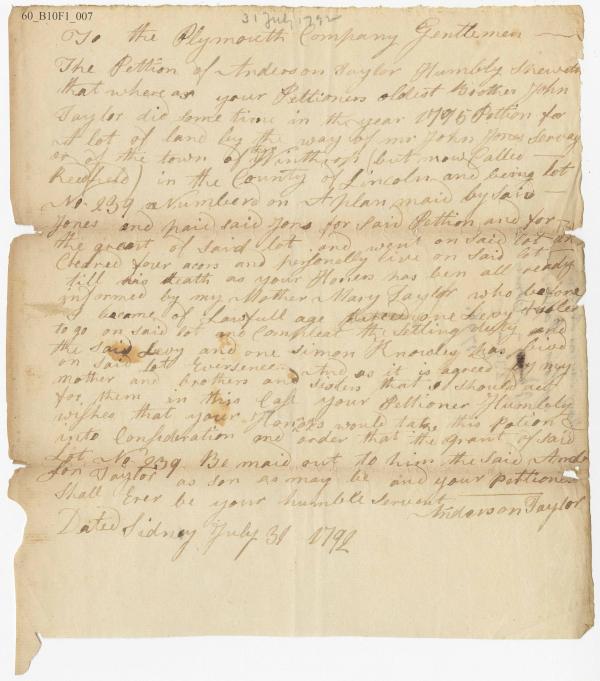 60_B10F1_007
31 July 1792
To the Plymouth Company Gentlemen
The Pettion of Anderson Taylor Humbly Sheweth
that where as your Petitioners oldest Brother John
Taylor did some time in the year 1775 Pettion for
A lot of land by the way of mr John Jones Servay
er of the town of Winthrop (but now Called
Readfield) in the County of Lincoln and being lot
No 239 Numbered on A plan maid by Said
Jones and paid said Jons for Said Pettion and for
the graent of Said lot and went on Said lot an
Cleared four acors and personelly live on Said lot
till his death as your Honers has ben all ready
informed by my Mother Mary Taylor who before
I become of lawfull age one Levy
to go on said lot and Compleat the Setling duty and
the Said Levy and one Simon Knowles has lived
on Said lot Eversence. And as it is agreed by my
mother and brothers and Sisters that I Should act
for them in this Case your Petitioner Humbely
wishes that your Honors would take this Potion
into Consideration and order that the grant of Said
Lot No 239 Be maid out to him the Said Ande
son Taylor as son as may be and your Petitioner
Shall Ever be your humble Servent
Anderson Taylor
Dated Sidney July 31 1792